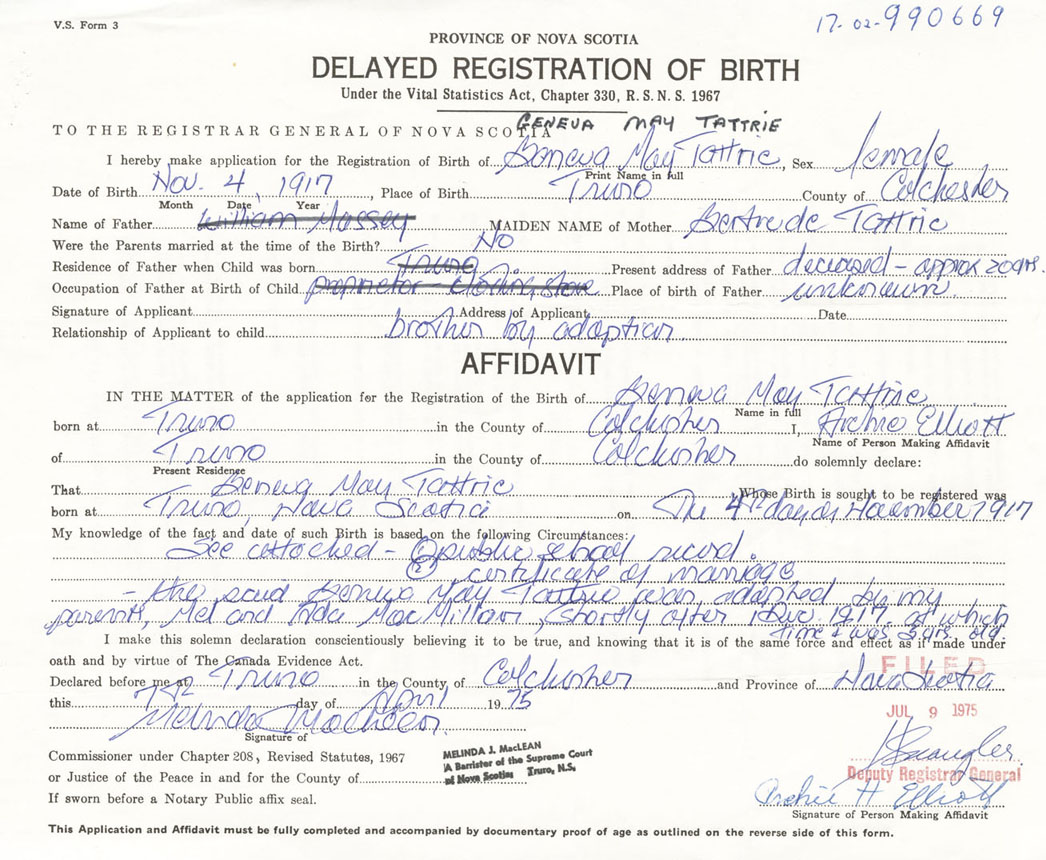 V.S. Form 3
17-02-990669
PROVINCE OF NOVA SCOTIA
DELAYED REGISTRATION OF BIRTH
Under the Vital Statistics Act, Chapter 330, R.S.N.S. 1967
GENEVA MAY TATTRIE
TO THE REGISTRAR GENERAL OF NOVA SCOTIA
I hereby make application for the Registration of Birth of Geneva May Tattrie, Sex female
Print Name in full
Date of Birth Nov. 4, 1917, Place of Birth Truro County of Colchester
Month Date Year
Name of Father William Massey MAIDEN NAME of Mother Gertrude Tattrie
Were the Parents married at the time of the Birth? No
Residence of Father when Child was born Truro Present address of Father deceased - approx 20yrs.
Occupation of Father at Birth of Child proprietor - clothing store Place of birth of Father unknown.
Signature of Applicant Address of Applicant Date
Relationship of Applicant to child brother by adoption
AFFIDAVIT
IN THE MATTER of the application for the Registration of the Birth of Geneva May Tattrie
Name in full
born at Truro in the County of Colchester I, Archie Elliott
Name of Person Making Affidavit
of Truro in the County of Colchester do solemnly declare:
Present Residence
That Geneva May Tattrie Whose Birth is sought to be registered was
born at Truro, Nova Scotia on The 4th day of November 1917
My knowledge of the fact and date of such Birth is based on the following Circumstances:
See attached - (1) public school record.
(2) certificate of marriage
- the said Geneva May Tattrie was adopted by my
parents, Mel and Ida MacMillan, shortly after Nov. 1917, at which
time I was 5 yrs. old
I make this solemn declaration conscientiously believing it to be true, and knowing that it is of the same force and effect as if made under
oath and by virtue of The Canada Evidence Act.
FILED
Declared before me at Truro in the County of Colchester and Province of Nova Scotia
this 7th day of April 1975
JUL 9 1975
Melinda MacLean
Signature of
Commissioner under Chapter 208, Revised Statutes, 1967
MELINDA J. MacLEAN
A Barrister of the Supreme Court
of Nova Scotia Truro, N.S.
or Justice of the Peace in and for the County of
Deputy Registrar General
Archie H Elliott
If sworn before a Notary Public affix seal.
Signature of Person Making Affidavit
This Application and Affidavit must be fully completed and accompanied by documentary proof of age as outlined on the reverse side of this form.